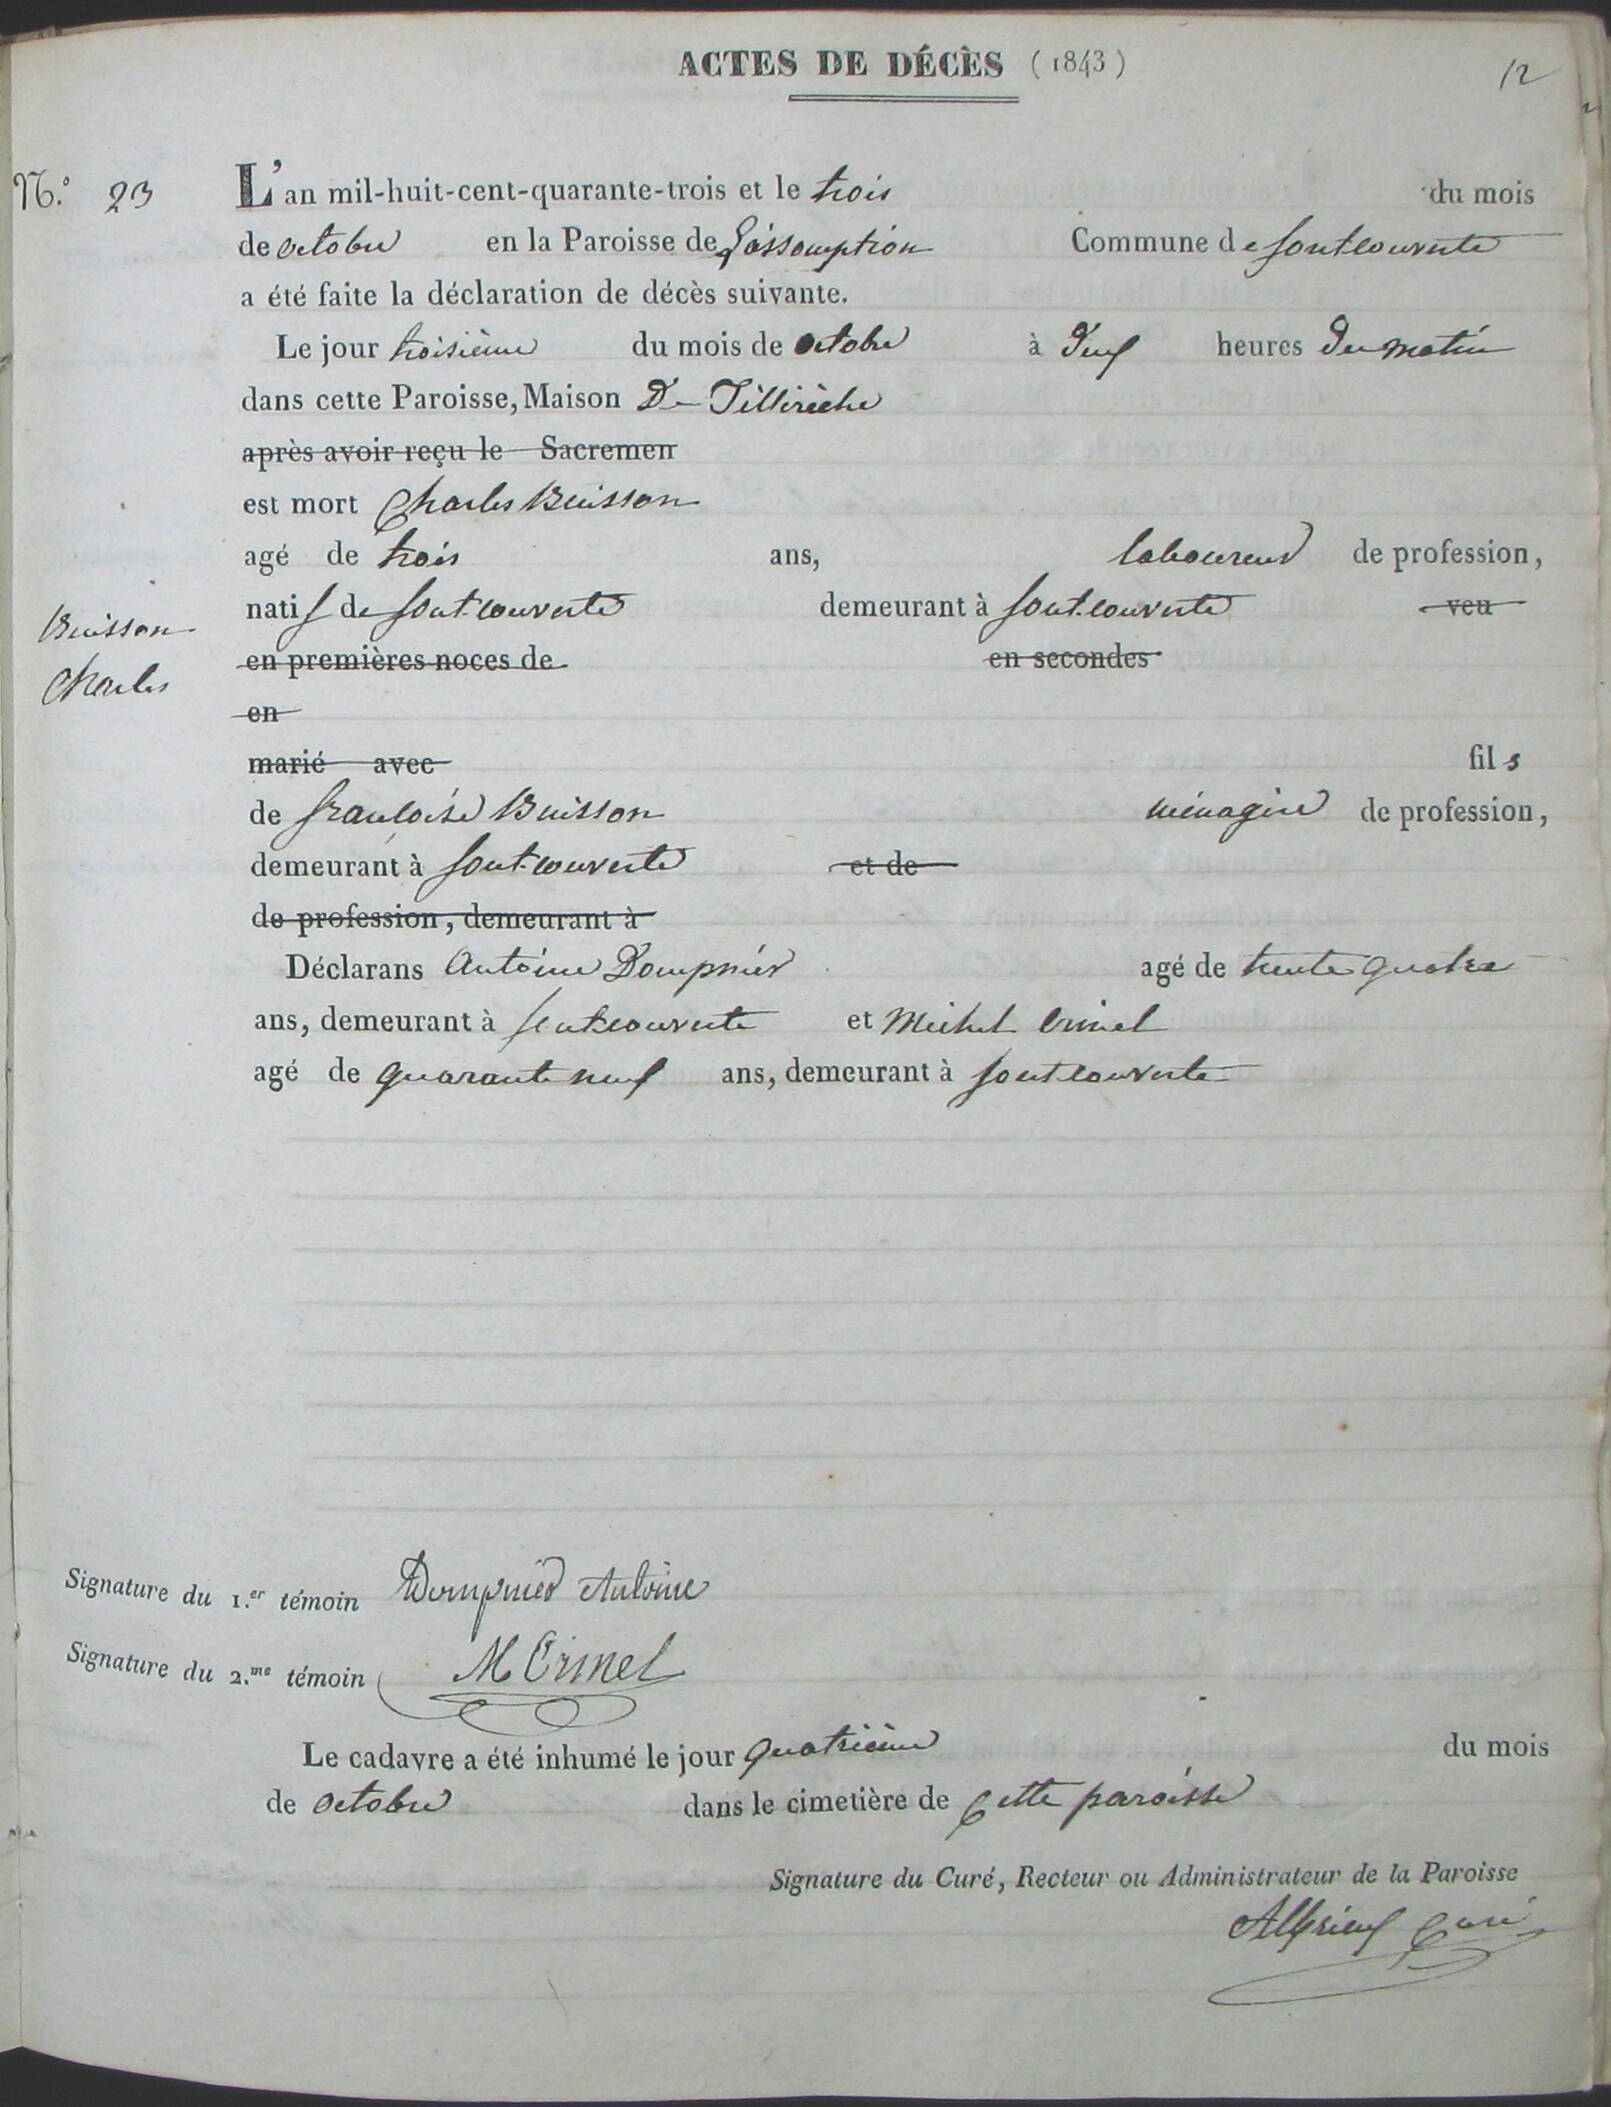 ACTES DE DÉCÈS (1843)
12
N.° 23
L'an mil-huit-cent-quarante-trois et le trois du mois
de octobre en la Paroisse de L'assomption Commune de fontcouverte
a été faite la déclaration de décès suivante.
Le jour troisième du mois de octobre à deux heures du matin
dans cette Paroisse, Maison D
après avoir reçu le Sacremen
est mort Charles Buisson
agé de trois ans, laboureur de profession,
natif de fontcouverte demeurant à fontcouverte veu
Buisson
Charles
en premières noces de en secondes
en
marié avec fils
de françoise Buisson ménagère de profession,
demeurant à fontcouverte et de
de profession, demeurant à
Déclarans Antoine Dompnier agé de trente quatre
ans, demeurant à fontcouverte et Michel
agé de quarante neuf ans, demeurant à fontcouverte
Signature du 1.er témoin Dompnier Antoine
Signature du 2.me témoin M
Le cadavre a été inhumé le jour quatrième du mois
de octobre dans le cimetière de cette paroisse
Signature du Curé, Recteur ou Administrateur de la Paroisse
Curé